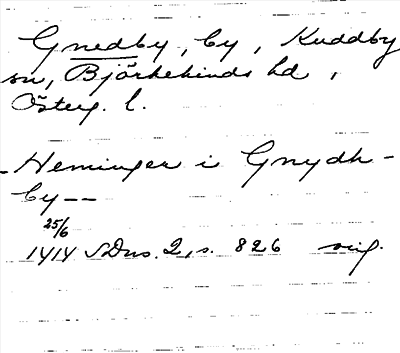 Gnedby, by, Kuddby
sn, Björkekinds hd,
Österg. l.
- Heminger i Gnydh-
by --
25/6
1414 SDns. 2, s. 826 sig.